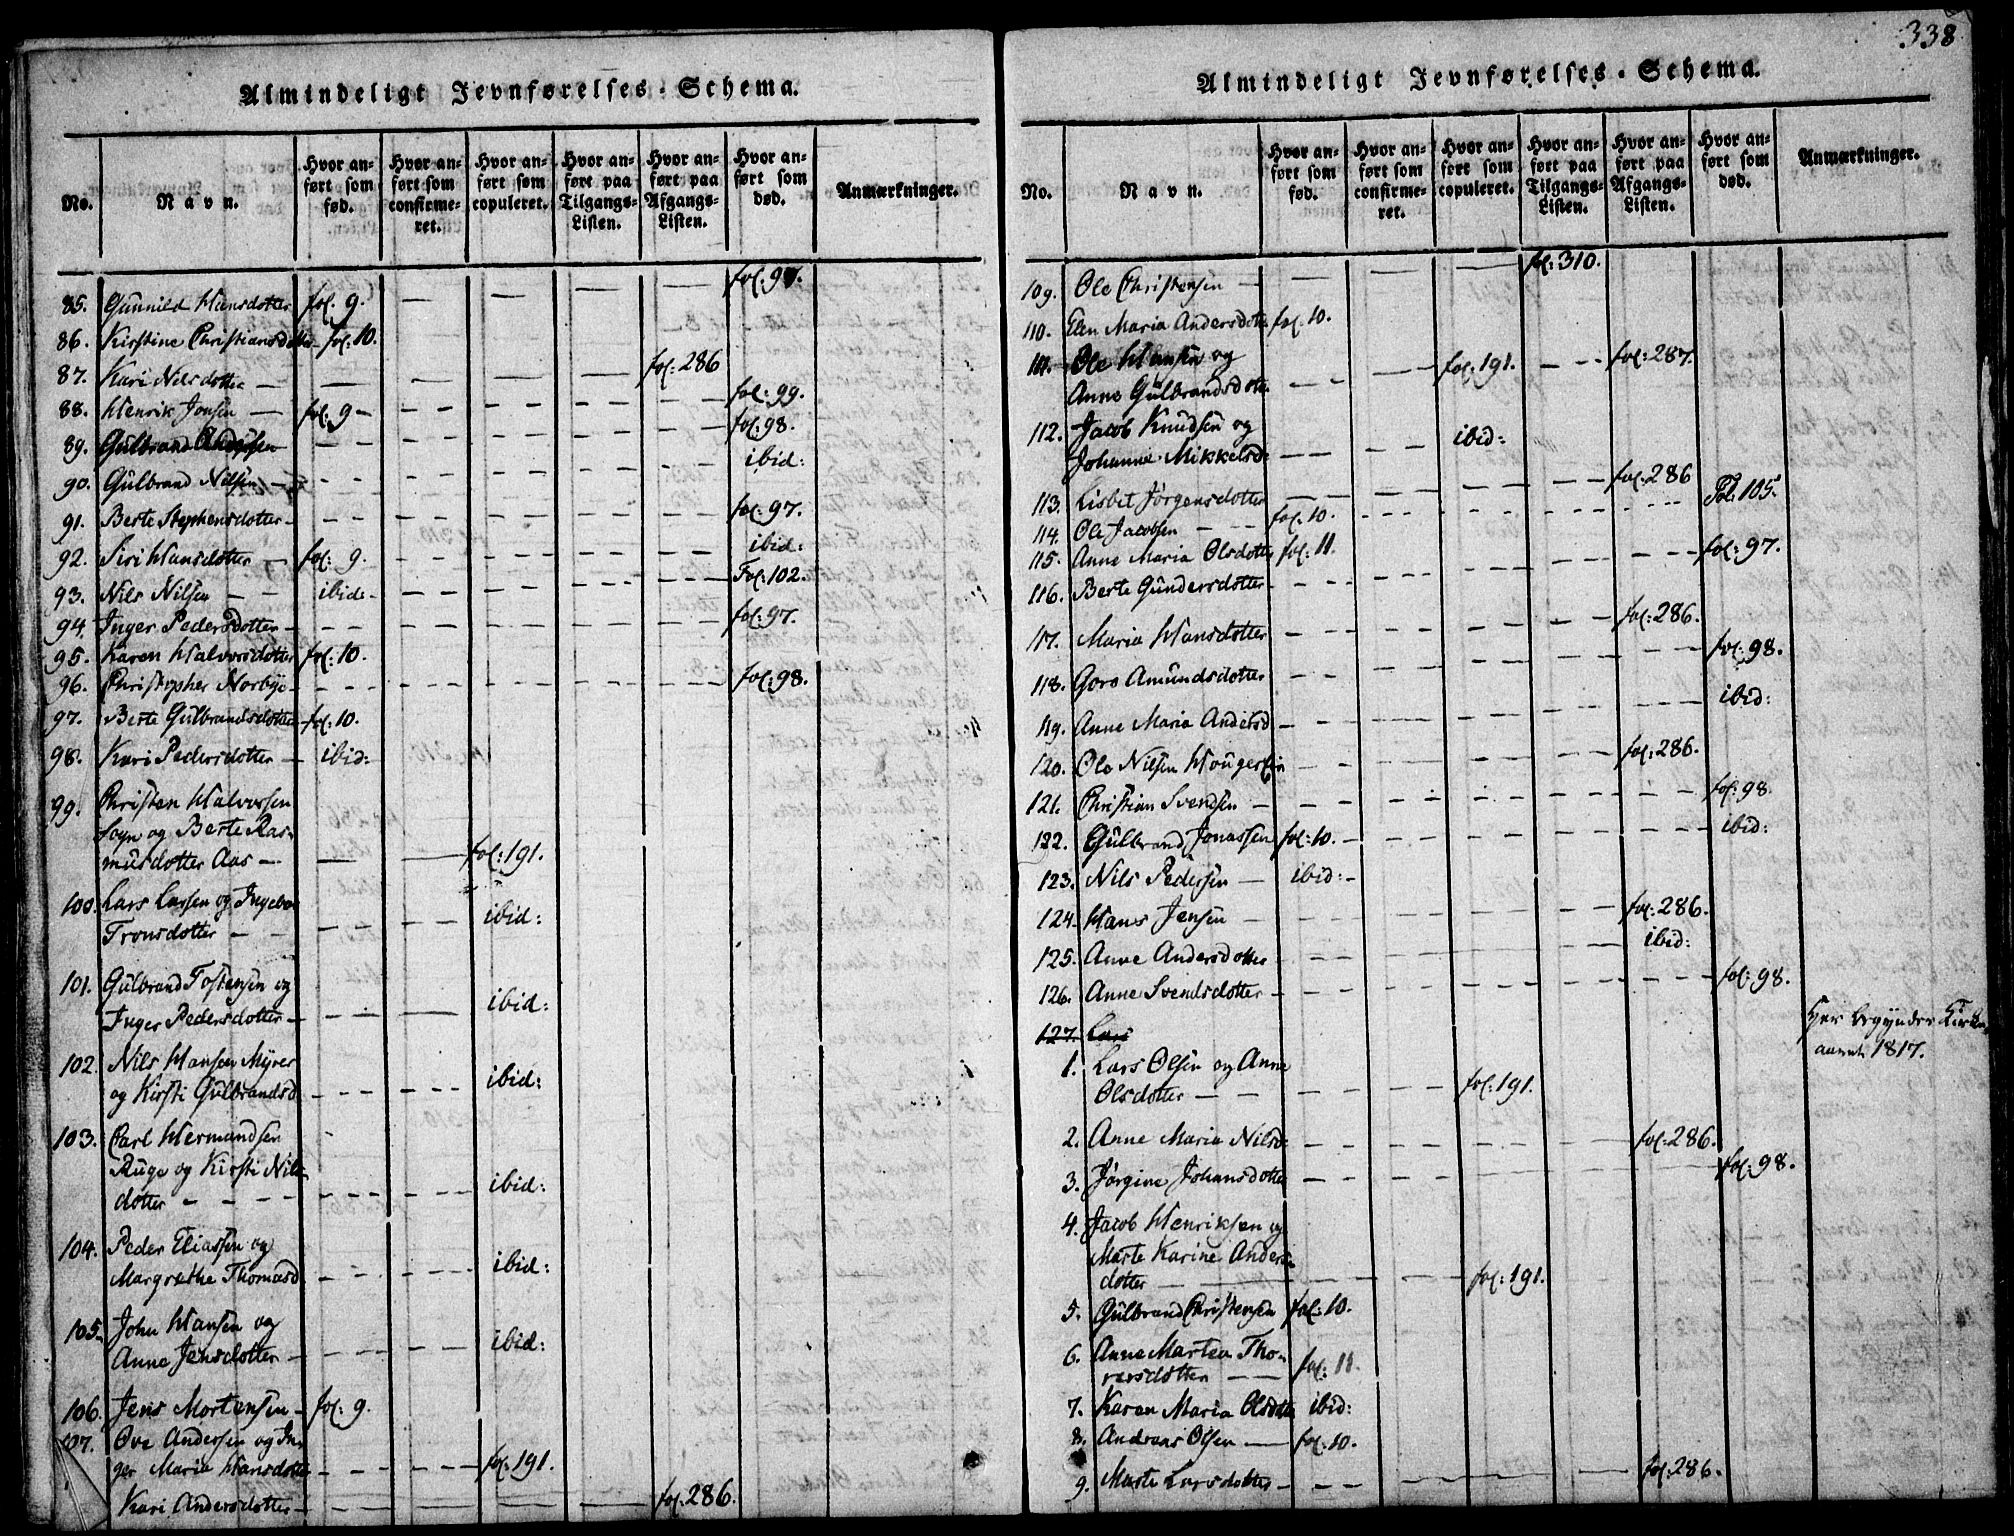 338
Almindeligt Jevnførelses-Schema.
No. Navn. Hvor anført som fød. Hvor anført som confirmeret. Hvor anført som copuleret. Hvor anført paa Tilgangs-Listen. Hvor anført paa Afgangs-Listen. Hvor anført som død. Anmærkninger.
85. Gunnild Hansdotter fol: 9. — — — — fol: 97.
86. Kirstine Christiansdotter fol: 10.
87. Kari Nilsdotter — — — — — fol: 286
88. Henrik Jonsen — fol: 9 - - - - - fol: 99.
89. Gulbrand - - - - - fol: 98.
90. Gulbrand Nilsen - - - - - - ibid:
91. Berte Stephensdotter - - - - - - fol: 97.
92. Siri Hansdotter - fol: 9. - - - - ibid:
93. Nils Nilsen - - ibid: - - - - - Fol: 102.
94. Inger Pedersdotter - - - - - - fol: 97.
95. Karen Halvorsdotter fol: 10.
96. Christopher Norbye - - - - - - fol: 98.
97. Berte Gulbrandsdotter fol: 10.
98. Kari Pedersdotter - ibid:
99. Christen Halvorsen
Sogn og Berte Ras-
musdotter Aas - — — fol: 191.
100. Lars Larsen og Ingebor
Tronsdotter - - - - ibid:
101. Gulbrand Tostensen og
Inger Pedersdotter - - - ibid:
102. Nils Hansen Myrer
og Kirsti Gulbrandsd - - - ibid:
103. Carl Hermandsen
Ruge og Kirsti Nils-
dotter - - - - - ibid:
104. Peder Eliassen og
Margrethe Thomasd - - - ibid:
105. John Hansen og
Anne Jensdotter - - - ibid:
106. Jens Mortensen - fol: 9.
107. Ove Andersen og In-
ger Maria Hansdotter - - - fol: 191.
Kari Andersdotter - — — — — fol: 286.
Almindeligt Jevnførelses-Schema.
No. Navn. Hvor anført som fød. Hvor anført som confirmeret. Hvor anført som copuleret. Hvor anført paa Tilgangs-Listen. Hvor anført paa Afgangs-Listen. Hvor anført som død. Anmærkninger.
109. Ole Christensen — — — — fol: 310.
110. Elen Maria Andersdotter fol: 10.
111. Ole Hansen og
Anne Gulbrandsdotter - - — fol: 191. - - fol: 287.
112. Jacob Knudsen og
Johanne Mikkelsd: - - - - ibid:
113. Lisbet Jørgensdotter - - - - fol: 286
114. Ole Jacobsen - - fol: 10. - - - - Fol: 105.
115. Anne Maria Olsdotter fol: 11.
116. Berte Gundersdotter - - - - - fol: 97.
117. Maria Hansdotter - - - - fol: 286.
118. Goro Amundsdotter - - - - - fol: 98.
119. Anne Maria Andersd - - - - - ibid:
120. Ole Nilsen Hougerson - - - - fol: 286.
121. Christian Svendsen - - - - - - fol: 98.
122. Gulbrand Jonassen fol: 10. - - - - ibid:
123. Nils Pedersen — ibid: -
124. Hans Jensen - - - - - fol: 286.
125. Anne Andersdotter - - - - ibid:
126. Anne Svendsdotter - - - - - - fol: 98.
127. Lars
Her begynder Kirke
aaret 1817.
1. Lars Olsen og Anne
Olsdotter - - - - fol: 191.
2. Anne Maria Nilsd: - - - - fol: 286.
3. Jørgine Johansdotter - - - - - fol: 98.
4. Jacob Henriksen og
Marte Karine Anders-
dotter — — — fol: 191.
5. Gulbrand Christensen fol: 10.
6. Anne Martea Tho-
rersdotter — — fol: 11.
7. Karen Maria Olsdotter ibid:
8. Andreas Olsen — fol: 10.
9. Marte Larsdotter - - - — — fol: 286.